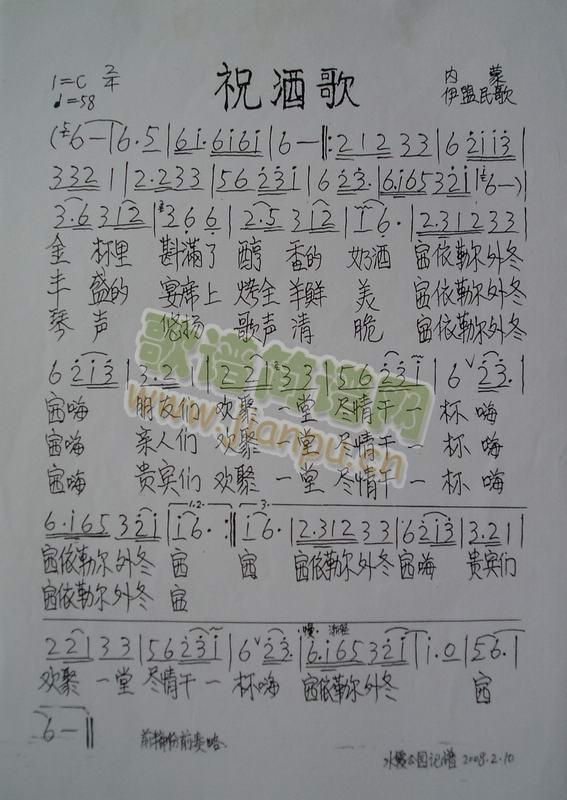 1=C 2/4
♩=58
祝酒歌
内蒙
伊盟民歌
6 — | 6· 5 | 6i· 6i6i | 6 — ‖: 2 1 2 3 3 | 6 2i i3 |
3 3 2 1 | 2·2 3 3 | 5 6 2 3 i | 6 2 3· | 6·i 6 5 3 2 i | 6 — )
3·6 3 i 2 | 3 6 6 | 2·5 3 i 2 | i 6· | 2·3 1 2 3 3 |
金杯里 斟满了 醇香的 奶酒 㖿依勒尔外冬
丰盛的 宴席上 烤全羊鲜美 㖿依勒尔外冬
琴声 悠扬 歌声清脆 㖿依勒尔外冬
歌谱简谱网
www.jianpu.cn
6 2 i 3 | 3·2 1 | 2 2 1 3 3 | 5 6 2 2 i | 6 ∨ 2 3· |
嗨 朋友们 欢聚一堂 尽情干一杯嗨
嗨 亲人们 欢聚一堂 尽情干一杯嗨
嗨 贵宾们 欢聚一堂 尽情干一杯嗨
6·i 6 5 3 2 i | 1.2. i 6· :‖ 3. i 6· | 2·3 1 2 3 3 | 6 2 i 3 | 3·2 1 |
依勒尔外冬 依勒尔外冬 嗨 贵宾们
依勒尔外冬
慢 渐轻
2 2 1 3 3 | 5 6 2 3 i | 6 ∨ 2 3· | 6·i 6 5 3 2 i | i·0 | 5 6· |
欢聚一堂 尽情干一杯嗨 依勒尔外冬
6 — ‖
水 公园记谱 2008.2.10